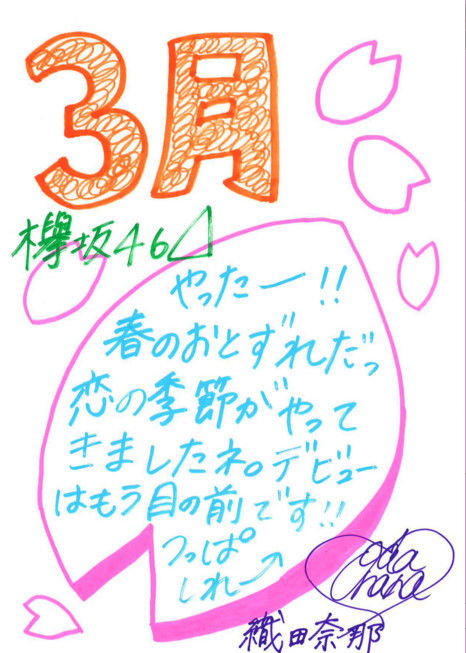 3月
欅坂46
やったー!!
春のおとずれだっ
恋の季節がやって
きましたネ。デビュー
はもう目の前です!!
つっぱ
しれー→
Oda
Nana
織田奈那